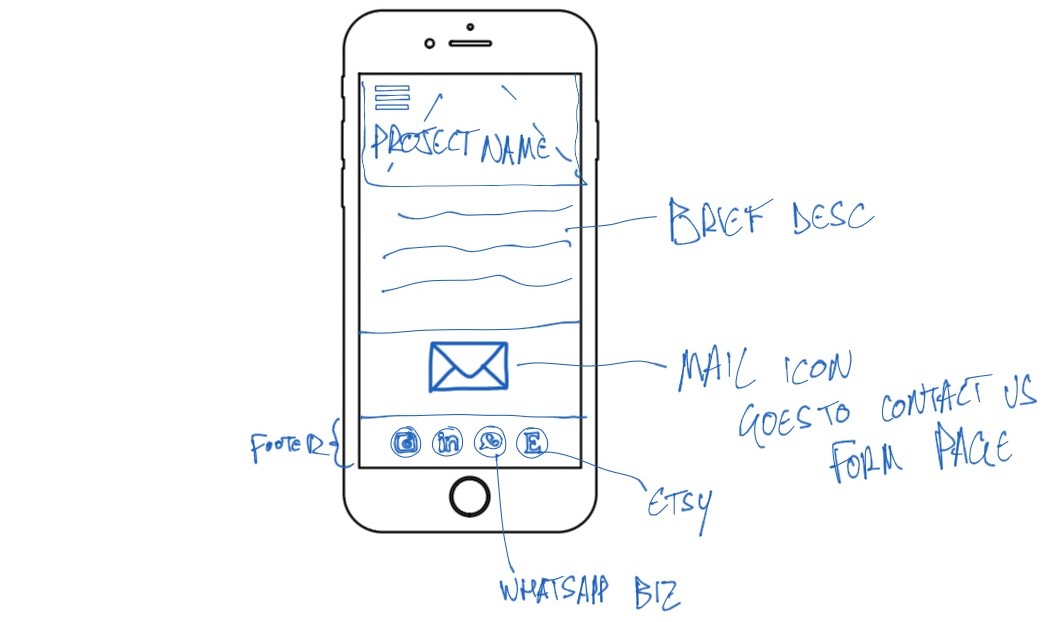 PROJECT NAME
BRIEF DESC
MAIL ICON
GOES TO CONTACT US
FORM PAGE
FOOTER
in
E
ETSY
WHATSAPP BIZ